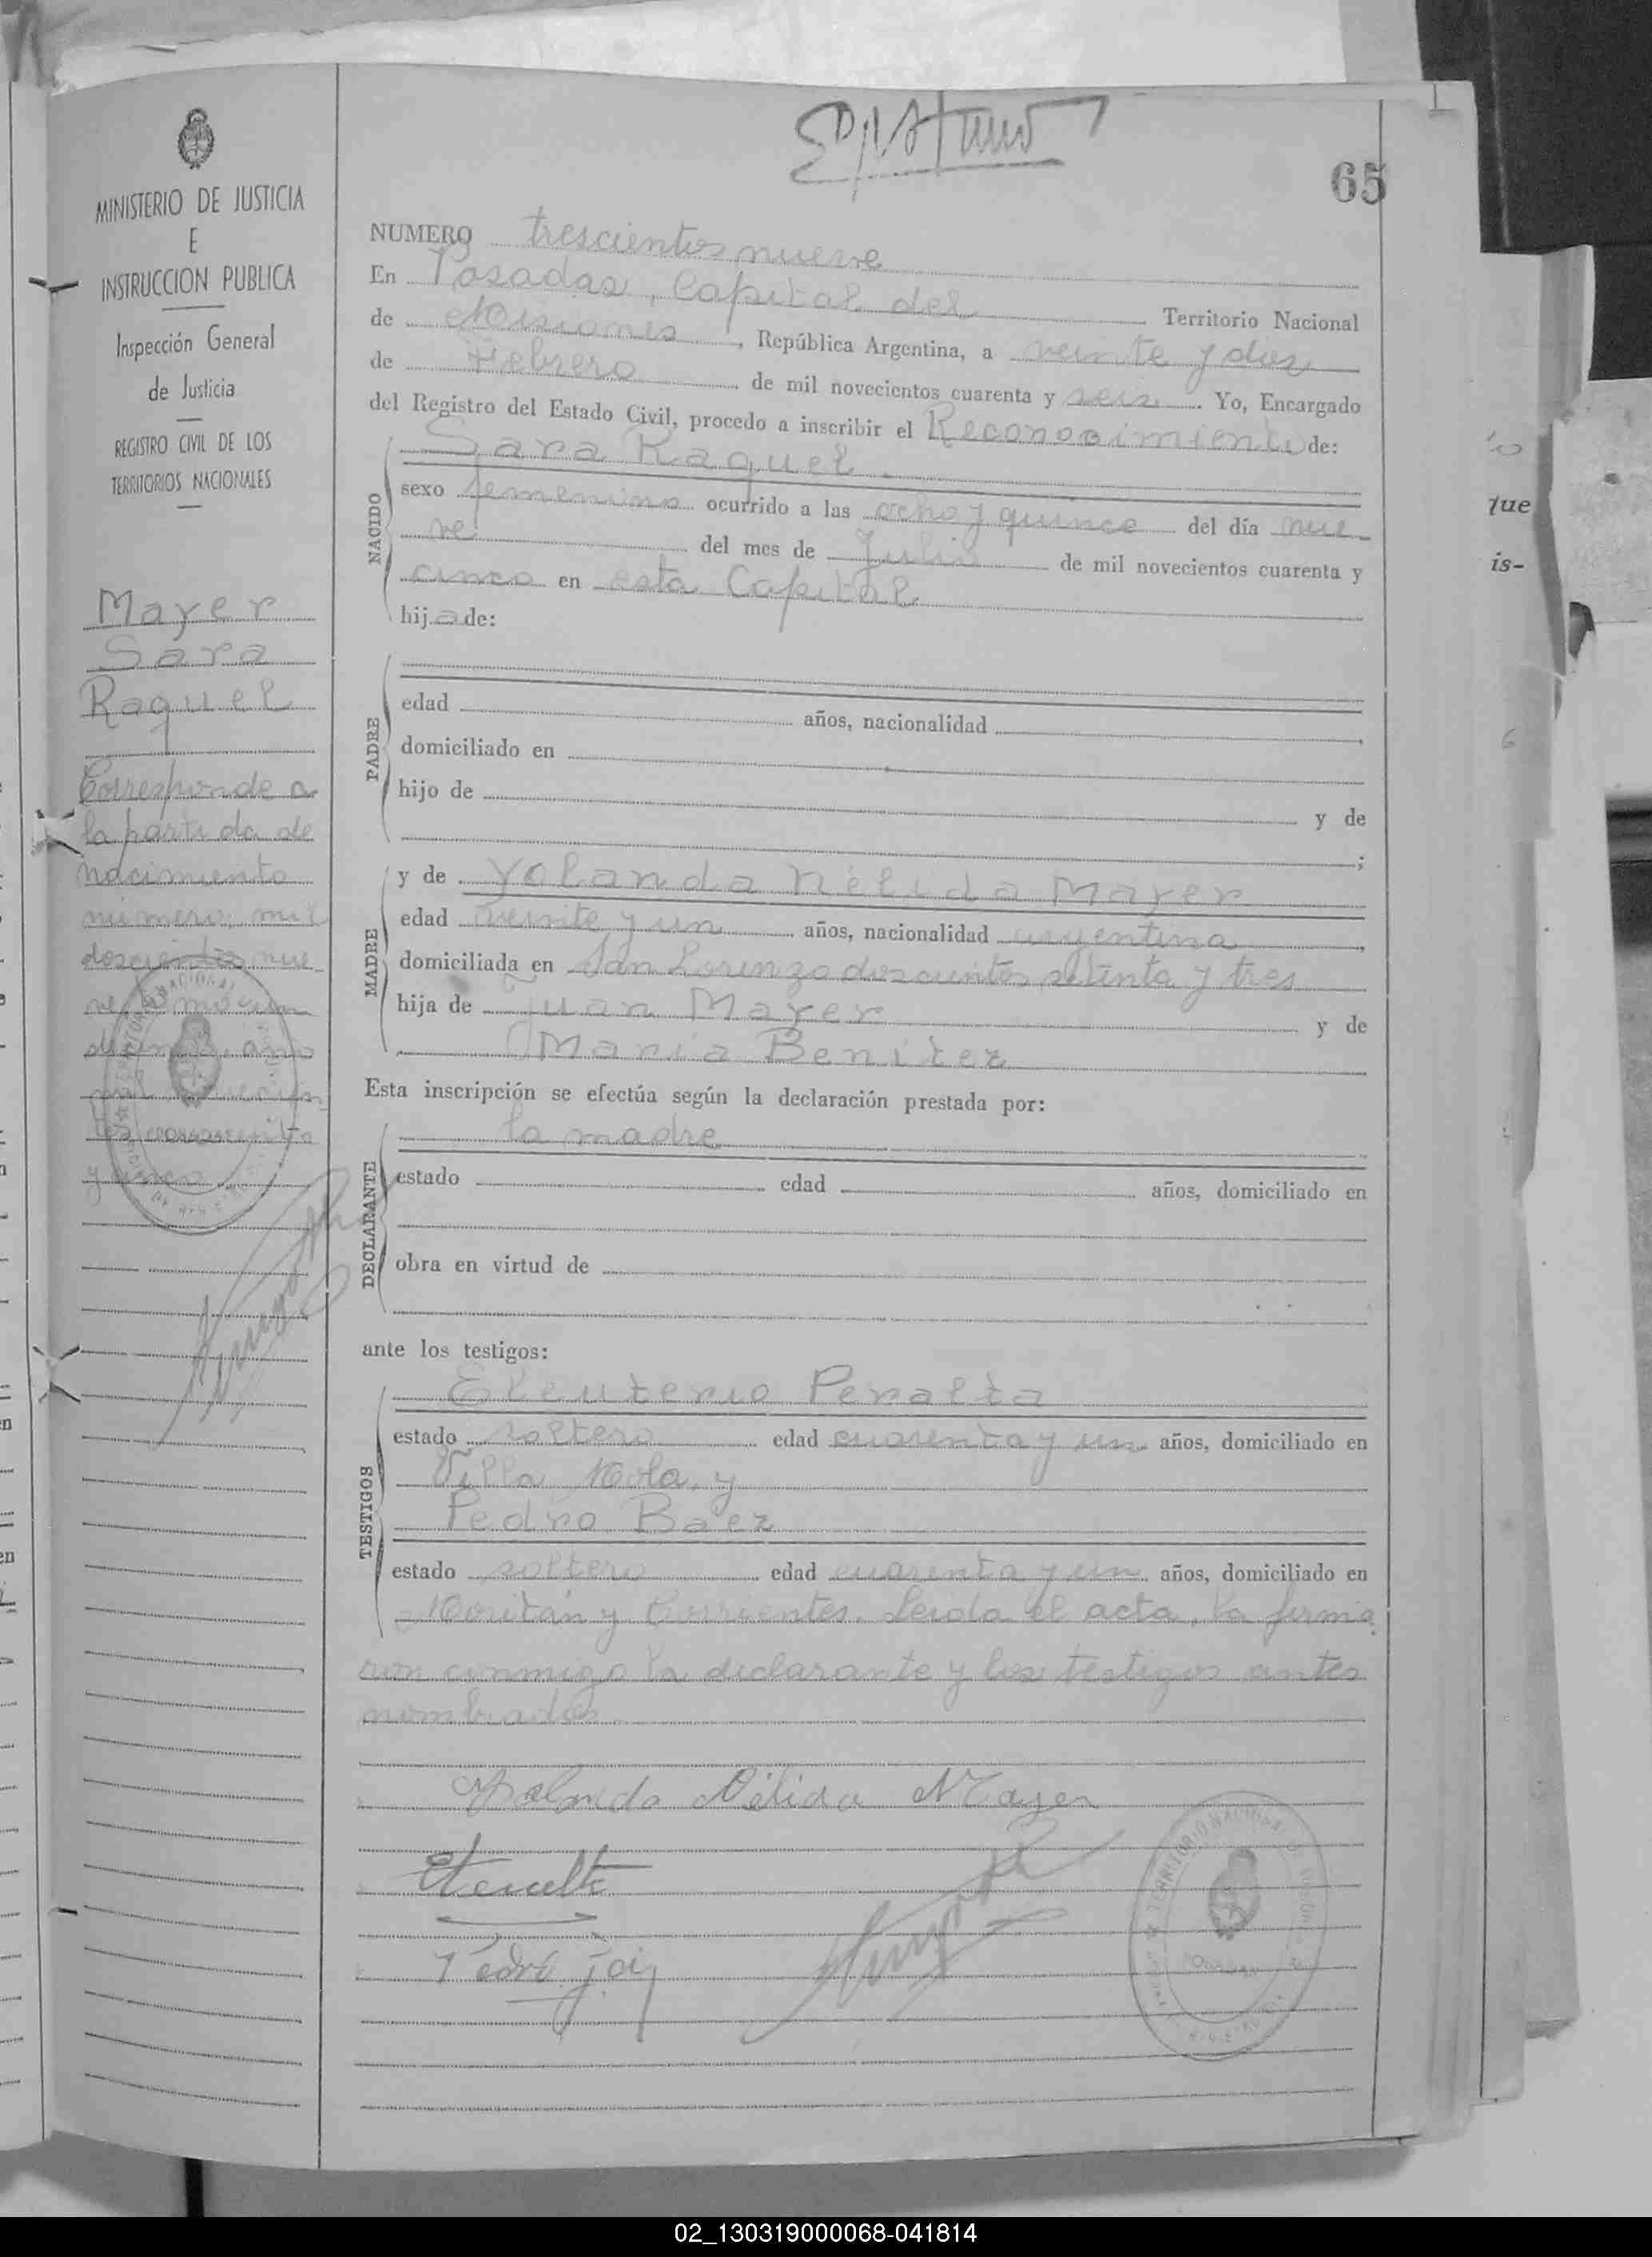 65
MINISTERIO DE JUSTICIA
E
INSTRUCCION PUBLICA
Inspección General
de Justicia
REGISTRO CIVIL DE LOS
TERRITORIOS NACIONALES
Mayer
Sara
Raquel
Corresponde a
la partida de
nacimiento
número mil
doscientos nue
ve
y cinco
NUMERO trescientos nueve
En Posadas, Capital del Territorio Nacional
de Misiones, República Argentina, a veinte y dos
de Febrero de mil novecientos cuarenta y seis. Yo, Encargado
del Registro del Estado Civil, procedo a inscribir el Reconocimiento de:
NACIDO
Sara Raquel.
sexo femenino ocurrido a las ocho y quince del día nue
ve del mes de Julio de mil novecientos cuarenta y
cinco en esta Capital
hija de:
PADRE
edad años, nacionalidad ,
domiciliado en
hijo de y de
;
MADRE
y de Yolanda Nélida Mayer
edad veinte y un años, nacionalidad argentina,
domiciliada en San Lorenzo doscientos setenta y tres
hija de Juan Mayer y de
María Benitez
Esta inscripción se efectúa según la declaración prestada por:
DECLARANTE
la madre
estado edad años, domiciliado en
obra en virtud de
ante los testigos:
TESTIGOS
Eleuterio Peralta
estado soltero edad cuarenta y un años, domiciliado en
Villa Mola, y
Pedro Baez
estado soltero edad cuarenta y un años, domiciliado en
y Corrientes. Leida el acta, la firma
ron conmigo la declarante y los testigos antes
nombrados
Yolanda Nélida Mayer
que
is-
02_130319000068-041814